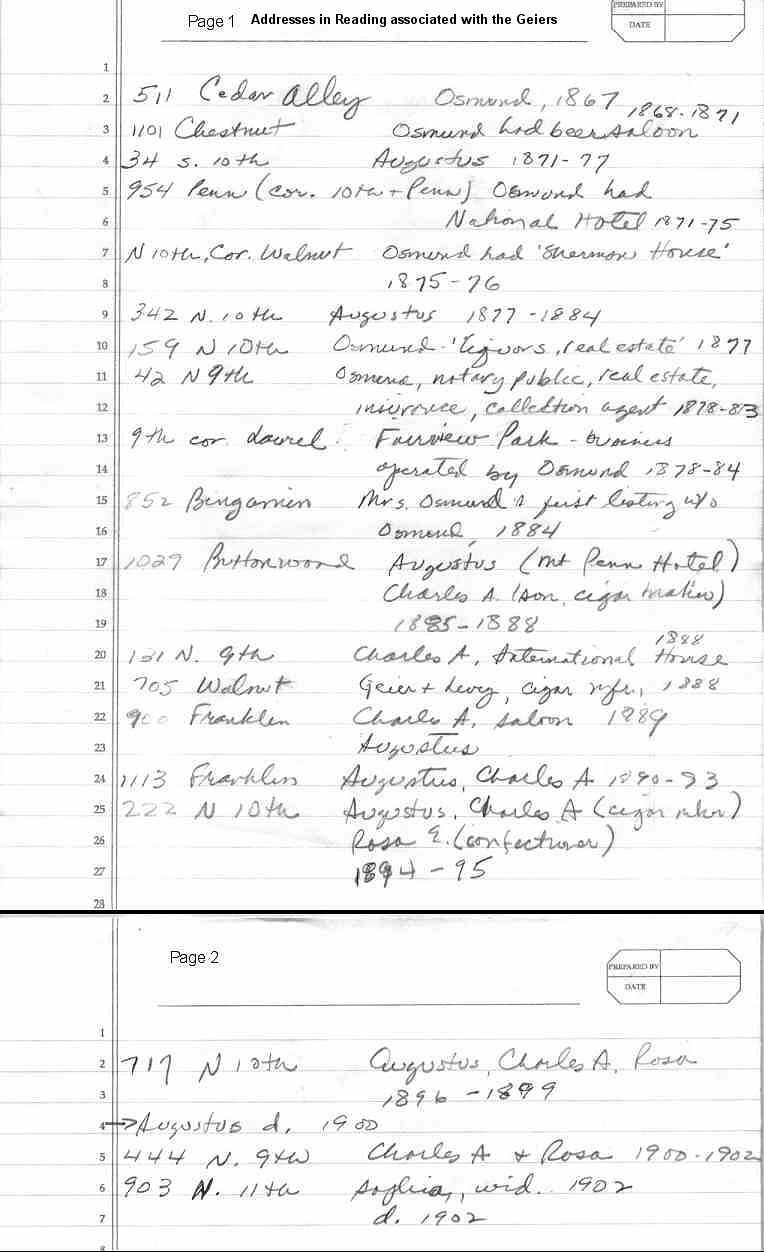 Page 1 Addresses in Reading associated with the Geiers
PREPARED BY
DATE
1
2 511 Cedar Alley Osmund, 1867
1868-1871
3 1101 Chestnut Osmund had beer saloon
4 34 S. 10th Augustus 1871-77
5 954 Penn (cor. 10th + Penn) Osmund had
6 National Hotel 1871-75
7 N 10th, Cor. Walnut Osmund had 'Sherman House'
8 1875-76
9 342 N. 10th Augustus 1877-1884
10 159 N 10th Osmund - 'liquors, real estate' 1877
11 42 N 9th Osmund, notary public, real estate,
12 insurance, collection agent 1878-83
13 9th cor. Laurel Fairview Park - business
14 operated by Osmund 1878-84
15 852 Bingaman Mrs. Osmund's first listing w/o
16 Osmund, 1884
17 1029 Buttonwood Augustus (Mt Penn Hotel)
18 Charles A. (son, cigar maker)
19 1885-1888
1888
20 131 N. 9th Charles A, International House
21 705 Walnut Geier + Levy, cigar mfr., 1888
22 900 Franklin Charles A, saloon 1889
23 Augustus
24 1113 Franklin Augustus, Charles A 1890-93
25 222 N 10th Augustus, Charles A (cigar mkr)
26 Rosa E. (confectioner)
27 1894-95
28
Page 2
PREPARED BY
DATE
1
2 717 N 10th Augustus, Charles A, Rosa
3 1896-1899
4 →Augustus d. 1900
5 444 N. 9th Charles A + Rosa 1900-1902
6 903 N. 11th Sophia, wid. 1902
7 d. 1902
8